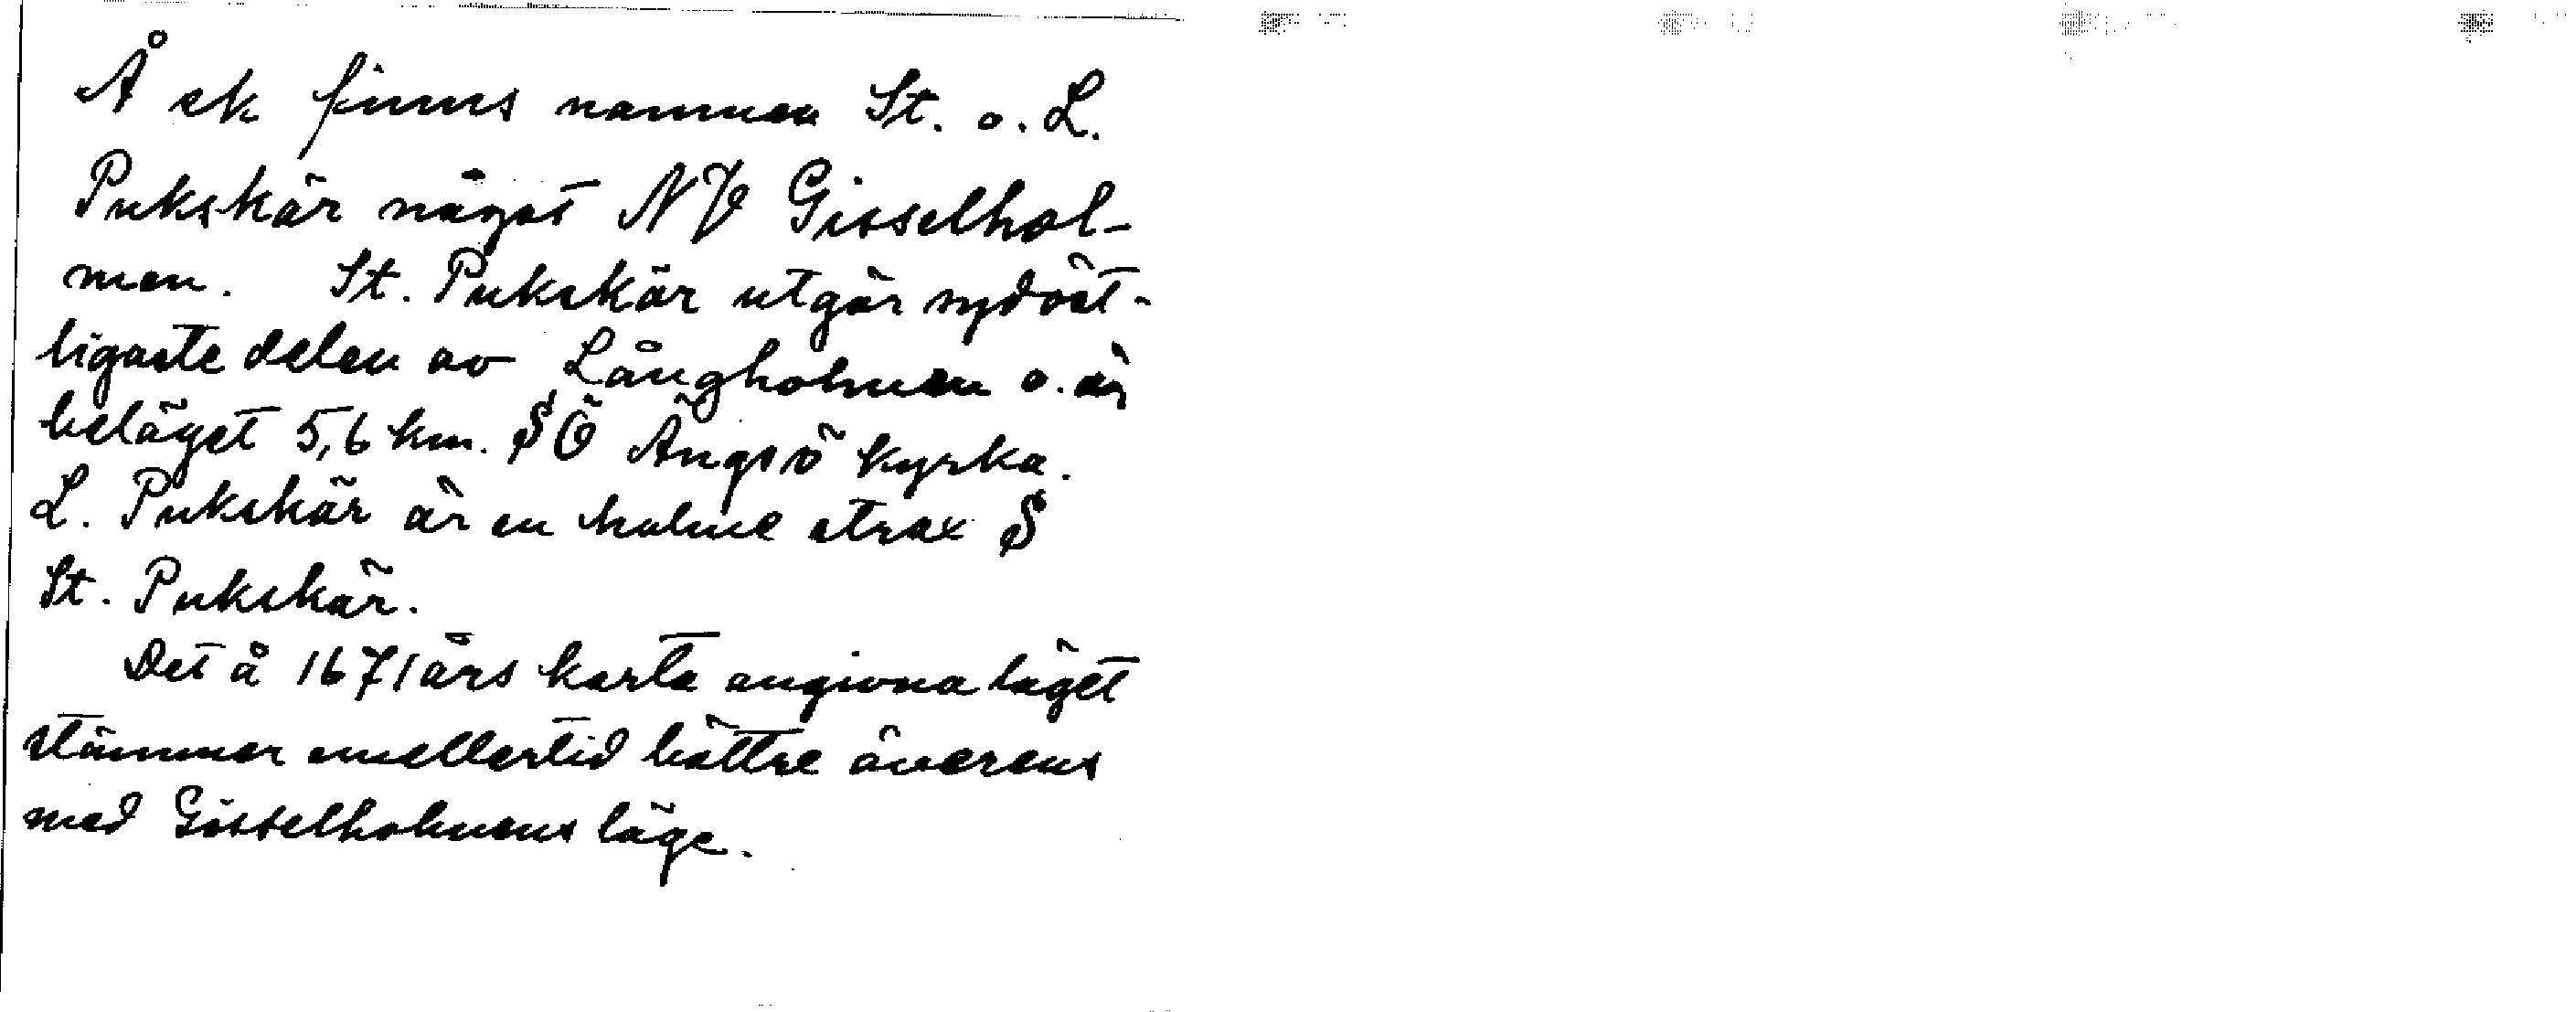 Å ek finns namnen St. o. L.
Pukskär något NV Gisselhol-
men. St. Pukskär utgör sydöst-
ligaste delen av Långholmen o. är
beläget 5,6 km. SÖ Ängsö kyrka.
L. Pukskär är en holme strax S
St. Pukskär.
Det å 1671 års karta angivna läget
stämmer emellertid bättre överens
med Gisselholmens läge.